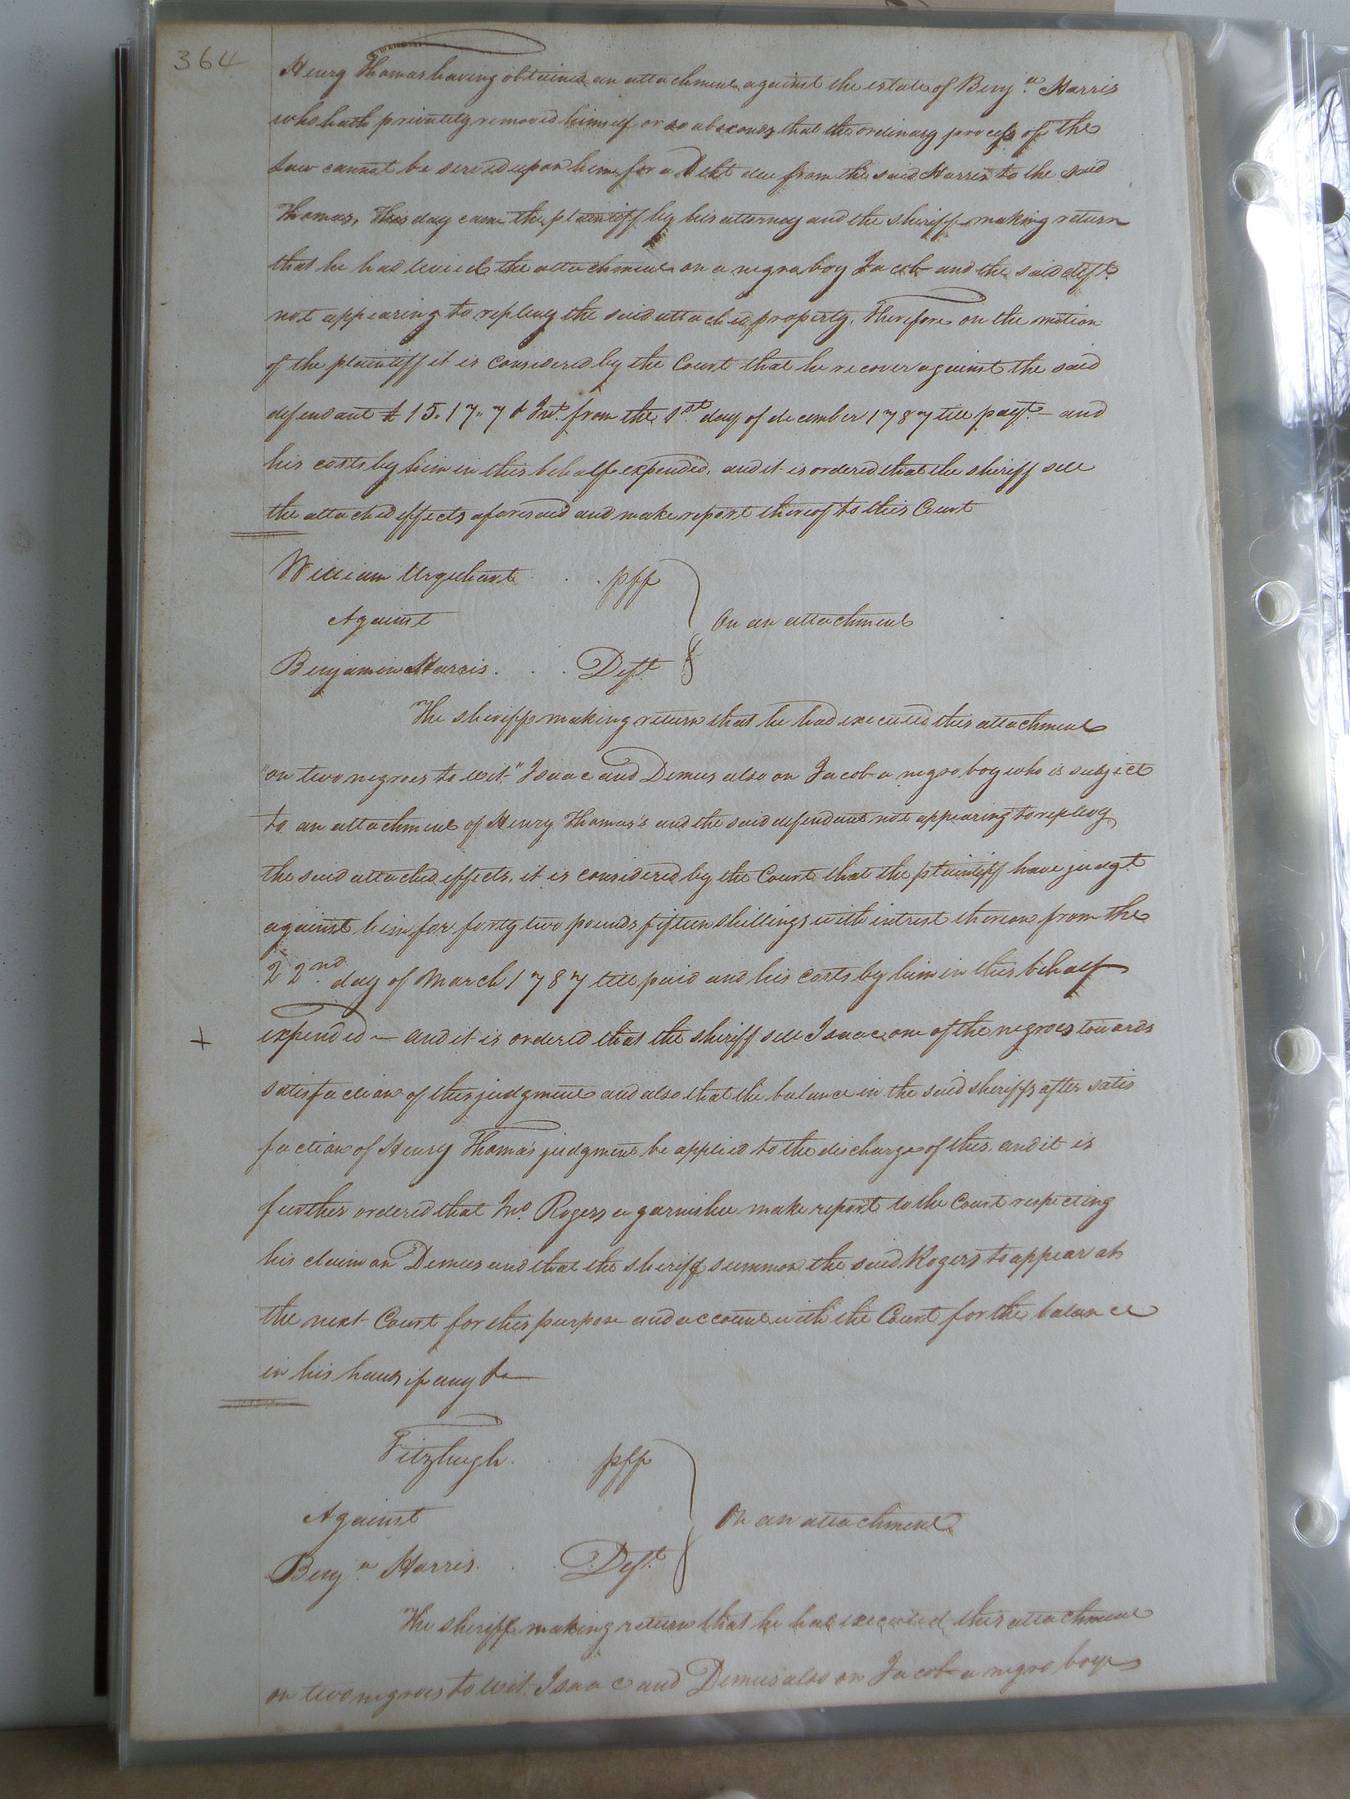 364
Henry Thomas having obtained an attachment against the estate of Benj.a Harris
who hath privately removed himself or so absconds that the ordinary process of the
Law cannot be served upon him for a Debt due from the said Harris to the said
Thomas, This day came the plaintiff by his attorney and the sheriff making return
that he had levied the attachment on a negro boy Jacob and the said deft.
not appearing to replevy the said attached property, Therefore on the motion
of the plaintiff it is considered by the Court that he recover against the said
defendant £15.17.7 & Int. from the 1st. day of december 1787 till payt. - and
his costs by him in this behalf expended, and it is ordered that the sheriff sell
the attached effects aforesaid and make report thereof to this Court
William Urquhart . . pff
Against
On an attachment
Benjamin Harris . . . Deft.
The sheriff making return that he had executed this attachment
"on two negroes to wit" Isaac and Demus also on Jacob a negro boy who is subject
to an attachment of Henry Thomas's and the said defendant not appearing to replevy
the said attached effects, it is considered by the Court that the plaintiff have judgt.
against him for forty two pounds fifteen shillings with intrest thereon from the
22nd. day of March 1787 till paid and his costs by him in this behalf
+ expended - and it is ordered that the sheriff sell Isaac one of the negroes towards
satisfaction of this judgment and also that the balance in the said sheriffs after satis
faction of Henry Thomas judgment be applied to the discharge of this, and it is
further ordered that Jno. Rogers a garnishee make report to the Court respecting
his claim on Demus and that the sheriff summon the said Rogers to appear at
the next Court for this purpose and account with the Court for the balance
in his hands if any &
Fitzhugh . . pff
Against
On an attachment
Benj.a Harris . . . Deft.
The sheriff making return that he had executed this attachment
on two negroes to wit. Isaac and Demus also on Jacob a negro boy